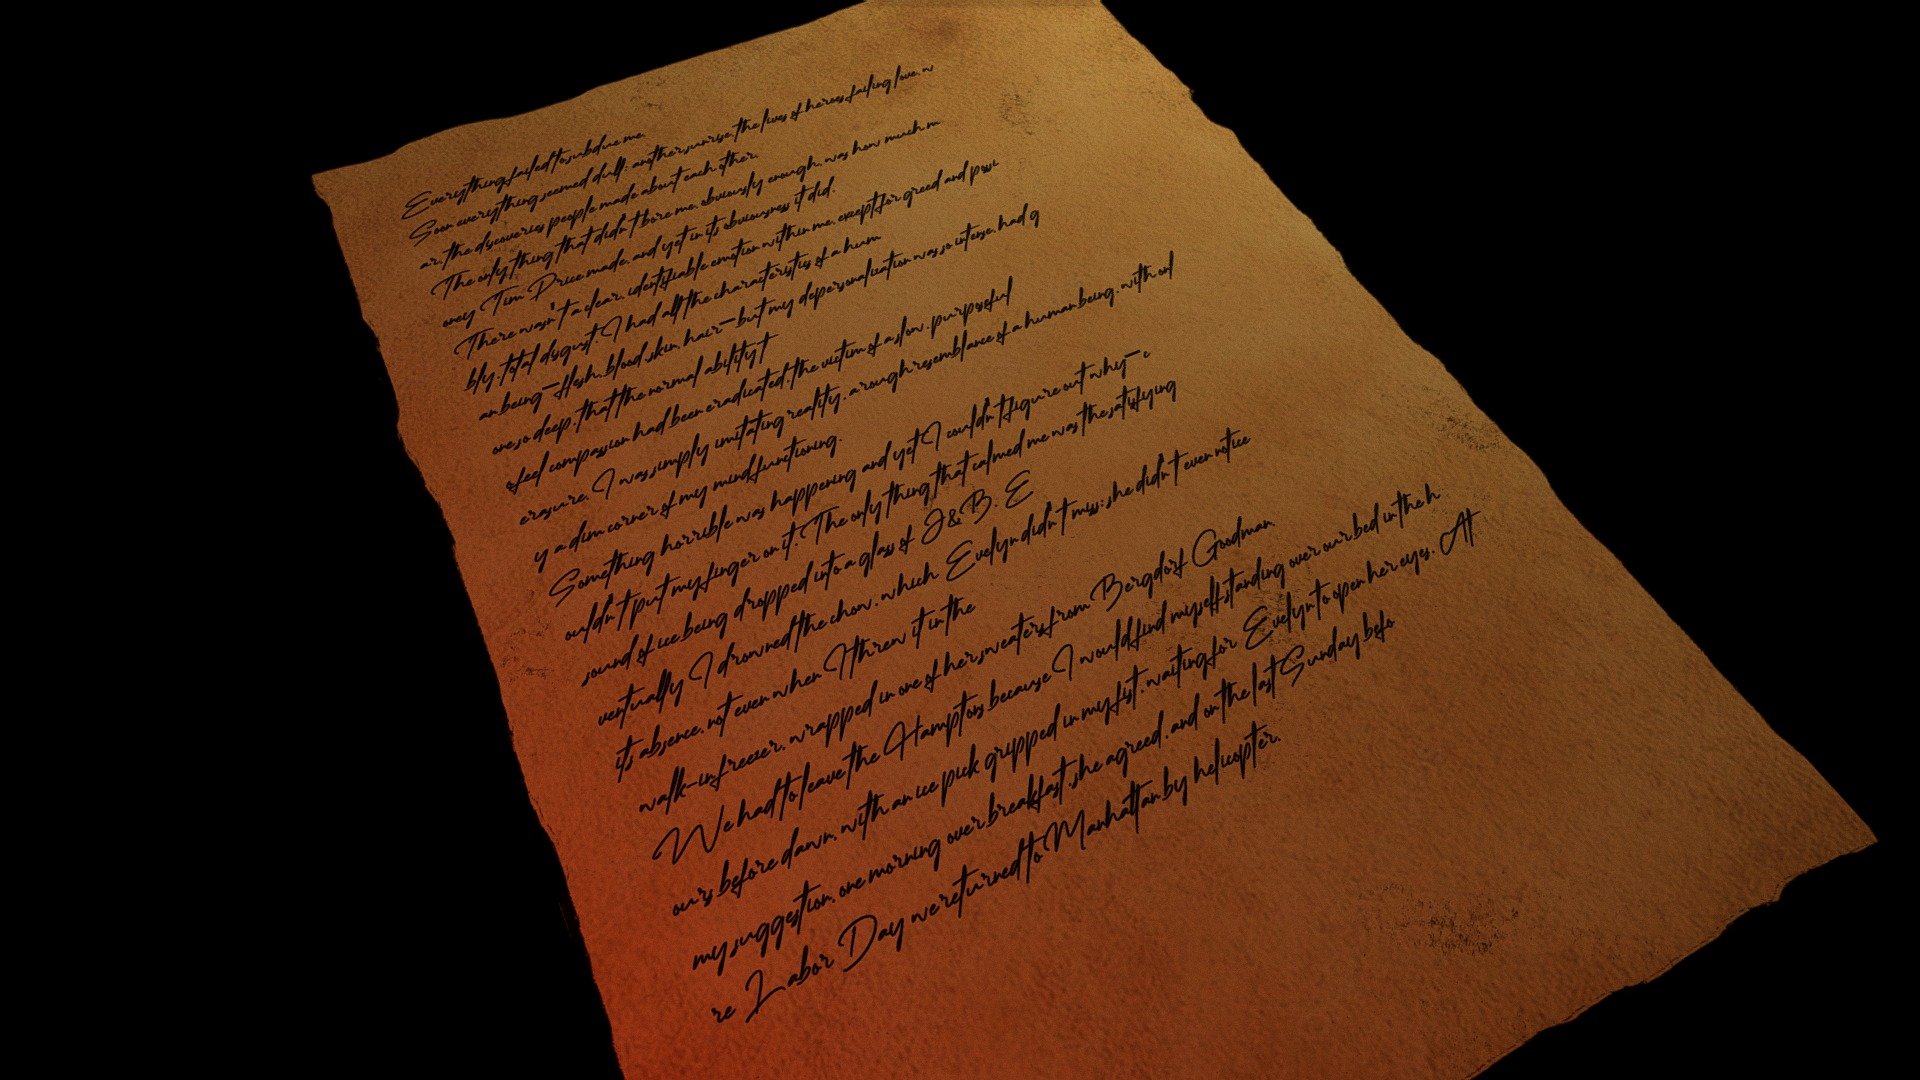 Everything failed to subdue me.
Soon everything seemed dull: another sunrise, the lives of heroes, falling love, w
ar, the discoveries people made about each other.
The only thing that didn't bore me, obviously enough, was how much m
oney Tim Price made, and yet in its obviousness it did.
There wasn't a clear, identifiable emotion within me, except for greed and possi
bly, total disgust. I had all the characteristics of a hum
an being—flesh, blood, skin, hair—but my depersonalization was so intense, had g
one so deep, that the normal ability t
o feel compassion had been eradicated, the victim of a slow, purposeful
erasure. I was simply imitating reality, a rough resemblance of a human being, with onl
y a dim corner of my mind functioning.
Something horrible was happening and yet I couldn't figure out why—c
ouldn't put my finger on it. The only thing that calmed me was the satisfying
sound of ice being dropped into a glass of J&B. E
ventually I drowned the chow, which Evelyn didn't miss; she didn't even notice
its absence, not even when I threw it in the
walk-in freezer, wrapped in one of her sweaters from Bergdorf Goodman.
We had to leave the Hamptons because I would find myself standing over our bed in the h
ours before dawn, with an ice pick gripped in my fist, waiting for Evelyn to open her eyes. At
my suggestion, one morning over breakfast, she agreed, and on the last Sunday befo
re Labor Day we returned to Manhattan by helicopter.